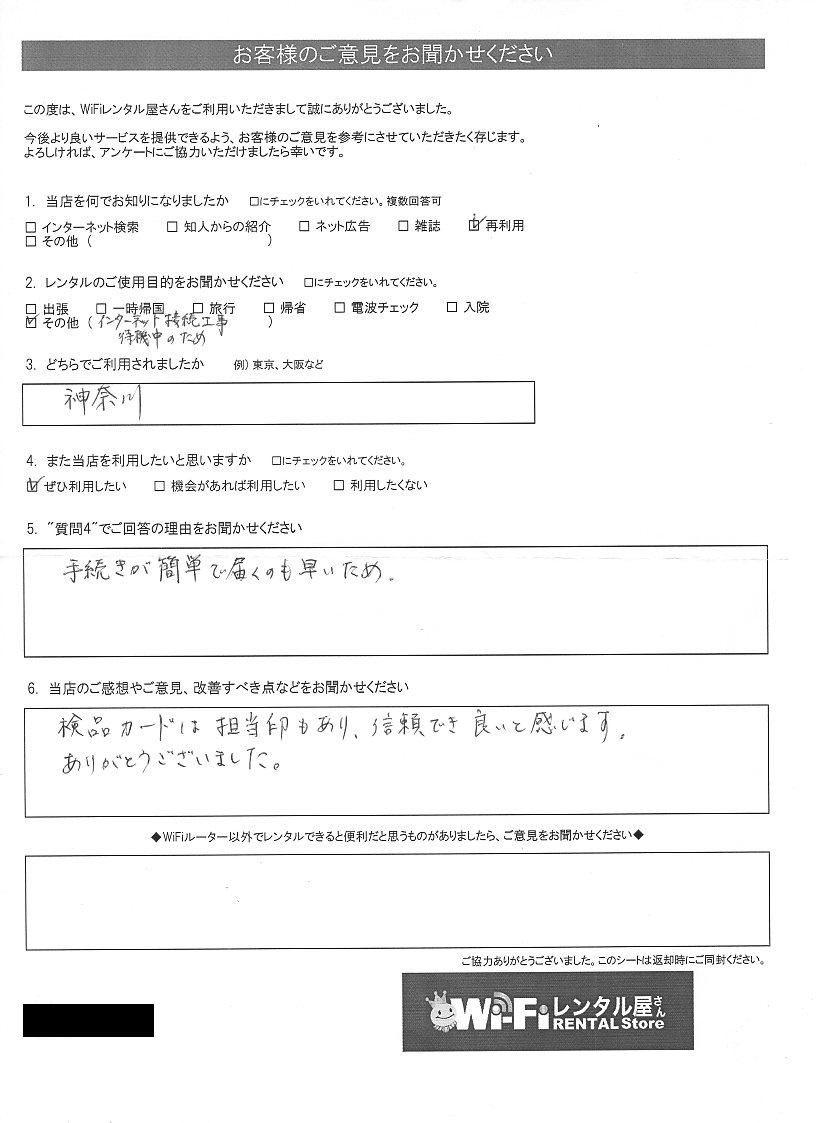 お客様のご意見をお聞かせください
この度は、WiFiレンタル屋さんをご利用いただきまして誠にありがとうございました。
今後より良いサービスを提供できるよう、お客様のご意見を参考にさせていただきたく存じます。
よろしければ、アンケートにご協力いただけましたら幸いです。
1. 当店を何でお知りになりましたか □にチェックをいれてください。複数回答可
□ インターネット検索 □ 知人からの紹介 □ ネット広告 □ 雑誌 ☑ 再利用
□ その他 ( )
2. レンタルのご使用目的をお聞かせください □にチェックをいれてください。
□ 出張 □ 一時帰国 □ 旅行 □ 帰省 □ 電波チェック □ 入院
☑ その他 ( インターネット接続工事 )
待機中のため
3. どちらでご利用されましたか 例) 東京、大阪など
神奈川
4. また当店を利用したいと思いますか □にチェックをいれてください。
☑ ぜひ利用したい □ 機会があれば利用したい □ 利用したくない
5. "質問4"でご回答の理由をお聞かせください
手続きが簡単で届くのも早いため。
6. 当店のご感想やご意見、改善すべき点などをお聞かせください
検品カードは担当印もあり、信頼でき良いと感じます。
ありがとうございました。
◆WiFiルーター以外でレンタルできると便利だと思うものがありましたら、ご意見をお聞かせください◆
ご協力ありがとうございました。このシートは返却時にご同封ください。
Wi-Fiレンタル屋さん
RENTAL Store